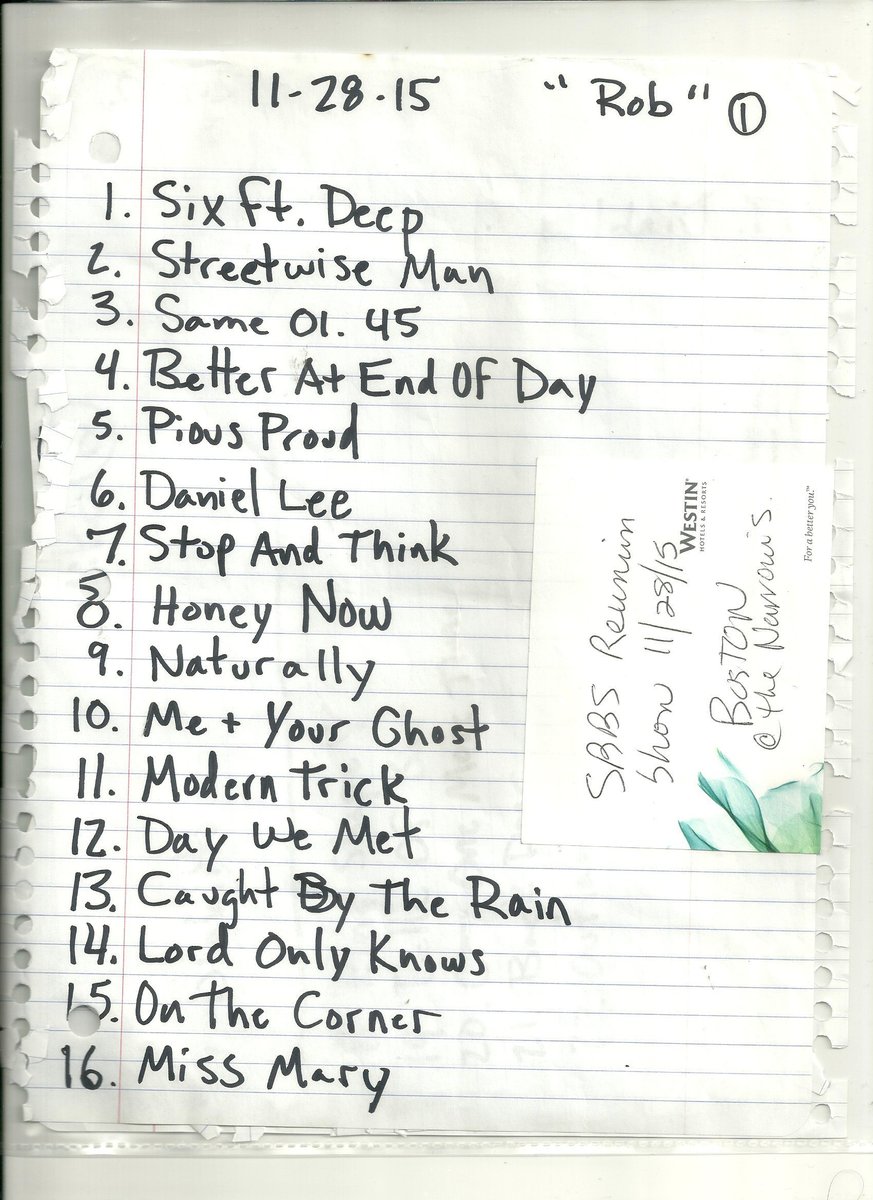 11-28-15 "Rob" ①
1. Six Ft. Deep
2. Streetwise Man
3. Same Ol. 45
4. Better At End Of Day
5. Pious Proud
6. Daniel Lee
7. Stop And Think
8. Honey Now
9. Naturally
10. Me + Your Ghost
11. Modern Trick
12. Day We Met
13. Caught By The Rain
14. Lord Only Knows
15. On The Corner
16. Miss Mary
SBBS Reunion
Show 11/28/15
WESTIN®
HOTELS & RESORTS
BOSTON
@ the Narrows.
For a better you.™